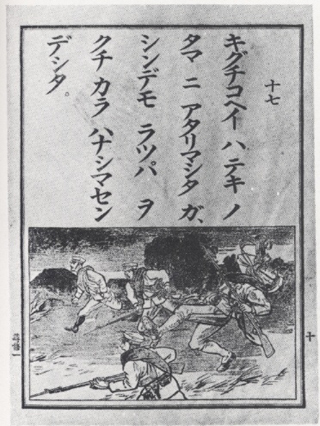 十七
キグチコヘイ ハ テキ ノ
タマ ニ アタリマシタ ガ、
シンデモ ラツパ ヲ
クチ カラ ハナシマセン
デシタ。
十